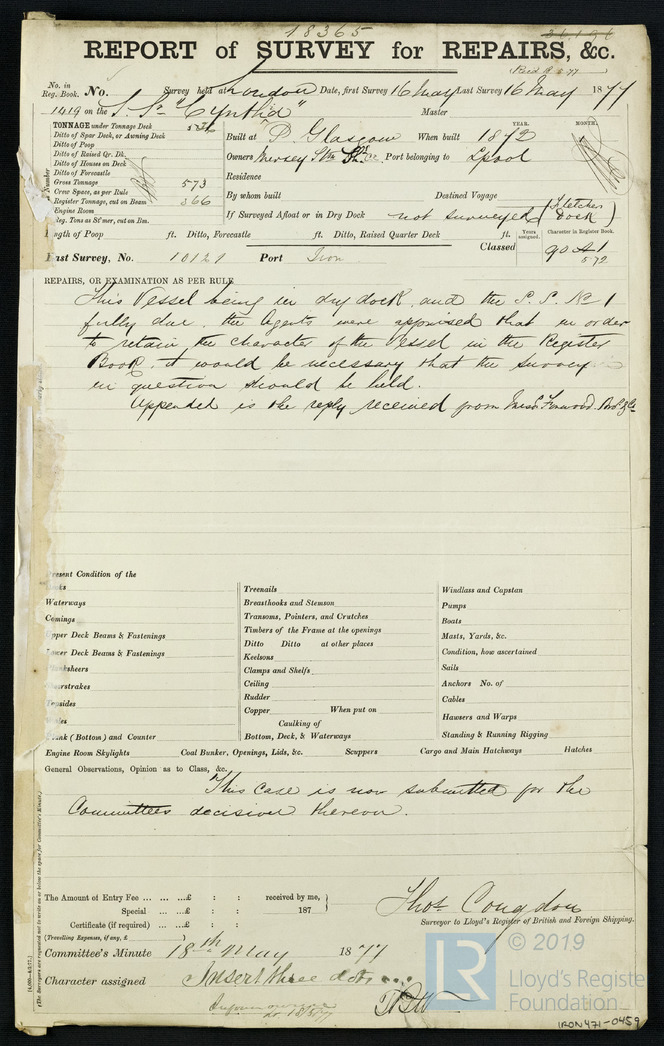 18365
REPORT of SURVEY for REPAIRS, &c.
No. in Reg. Book. No. Survey held at London Date, first Survey 16 May Last Survey 16 May 1877
1419 on the S. Sr "Cynthia" Master
TONNAGE under Tonnage Deck
Ditto of Spar Deck, or Awning Deck
Ditto of Poop
Ditto of Raised Qr. Dk.
Ditto of Houses on Deck
Ditto of Forecastle
Gross Tonnage 573
Crew Space, as per Rule
Register Tonnage, cut on Beam 366
Engine Room
Reg. Tons as St'mer, cut on Bm.
YEAR. MONTH.
Built at P. Glasgow When built 1872
Owners Mersey Port belonging to Lpool
Residence
By whom built Destined Voyage
If Surveyed Afloat or in Dry Dock not surveyed (Fletchers Dock)
ngth of Poop ft. Ditto, Forecastle ft. Ditto, Raised Quarter Deck ft.
Years assigned. Character in Register Book.
Last Survey, No. 10129 Port Iron Classed 90 A1
5,72
REPAIRS, OR EXAMINATION AS PER RULE
This Vessel being in dry dock, and the S. S. No 1
fully due, the Agents were apprised that in order
to retain the character of the Vessel in the Register
Book, it would be necessary that the Survey
in question should be held.
Appended is the reply received from Messrs Bros & Co
resent Condition of the
Waterways
Comings
pper Deck Beams & Fastenings
ower Deck Beams & Fastenings
ksheers
rstrakes
psides
ank (Bottom) and Counter
Treenails
Breasthooks and Stemson
Transoms, Pointers, and Crutches
Timbers of the Frame at the openings
Ditto Ditto at other places
Keelsons
Clamps and Shelfs
Ceiling
Rudder
Copper When put on
Caulking of
Bottom, Deck, & Waterways
Windlass and Capstan
Pumps
Boats
Masts, Yards, &c.
Condition, how ascertained
Sails
Anchors No. of
Cables
Hawsers and Warps
Standing & Running Rigging
Engine Room Skylights Coal Bunker, Openings, Lids, &c. Scuppers Cargo and Main Hatchways Hatches
General Observations, Opinion as to Class, &c.
This case is now submitted for the
Committees decision thereon.
The Amount of Entry Fee ... ... ...£ : : received by me,
Special ... ...£ : : 187
Certificate (if required) ... ...£ : :
(Travelling Expenses, if any, £ )
Thos. Congdon
Surveyor to Lloyd's Register of British and Foreign Shipping.
Committee's Minute 18th May 1877
Character assigned Insert three dots ...
18/5/77
(The Surveyors are requested not to write on or below the space for Committee's Minute.)
© 2019
LR
Lloyd's Registe
Foundation
IRON 471-0459